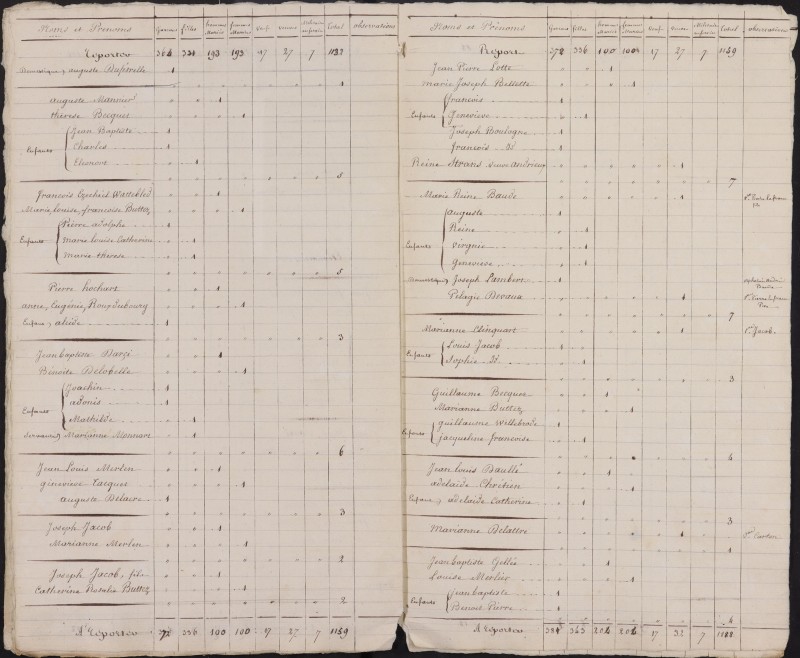 Noms et Prénoms Garçons filles hommes Mariés femmes Mariées Veufs veuves Militaires Total observations
Reporteo 364 331 193 193 17 27 7 1132
Domestique auguste Dufieville 1
1
auguste Mannier 1
thérèse Becquet 1
Enfants
Jean Baptiste 1
Charles 1
Elconort 1
5
françois Wattebled 1
Marie, louise, francoise Buttez 1
Enfants
Pierre adolphe 1
marie louise Catherine 1
marie therese 1
5
Pierre hochart 1
anne, Eugénie, Roux 1
Enfans, alide 1
3
Jean baptiste Darré 1
Benoite Delobelle 1
Enfants
Joachin 1
adonis 1
Mathilde 1
Servante Marianne Monnart 1
6
Jean Louis Merlen 1
genevieve Tacquet 1
auguste Delaire 1
3
Joseph Jacob 1
Marianne Merlen 1
2
Joseph Jacob, fils 1
Catherine Rosalie Buttez 1
2
A Reporteo 372 336 100 100 17 27 7 1159
Noms et Prénoms Garçons filles hommes Mariés femmes Mariées Veufs veuves Militaires Total observations
Report 372 336 100 100 17 27 7 1159
Jean Pierre Lotte 1
marie Joseph Bellette 1
Enfants
françois 1
Geneviève 1
Joseph Moulogne 1
francois Id. 1
Reine Strans veuve andrieux 1
7
Marie Reine Baude 1
Enfants
auguste 1
Reine 1
virginie 1
genevieve 1
Domestique Joseph Lambert 1
Pelagie Bevana 1
7
Marianne Clinquart 1 Ve. Jacob
Enfants
Louis Jacob 1
Sophie Id. 1
3
Guillaume Becquet 1
Marianne Buttez 1
Enfants
guillaume Willebrode 1
jacqueline francoise 1
4
Jean louis Baullé 1
adelaide Chrétien 1
Enfans, adelaide Catherine 1
3
Marianne Delattre 1 Ve. Carton
1
Jean baptiste Gillés 1
Louise Merlier 1
Enfants
Jean baptiste 1
Benoit Pierre 1
4
A Reporteo 384 343 204 204 17 32 7 1188